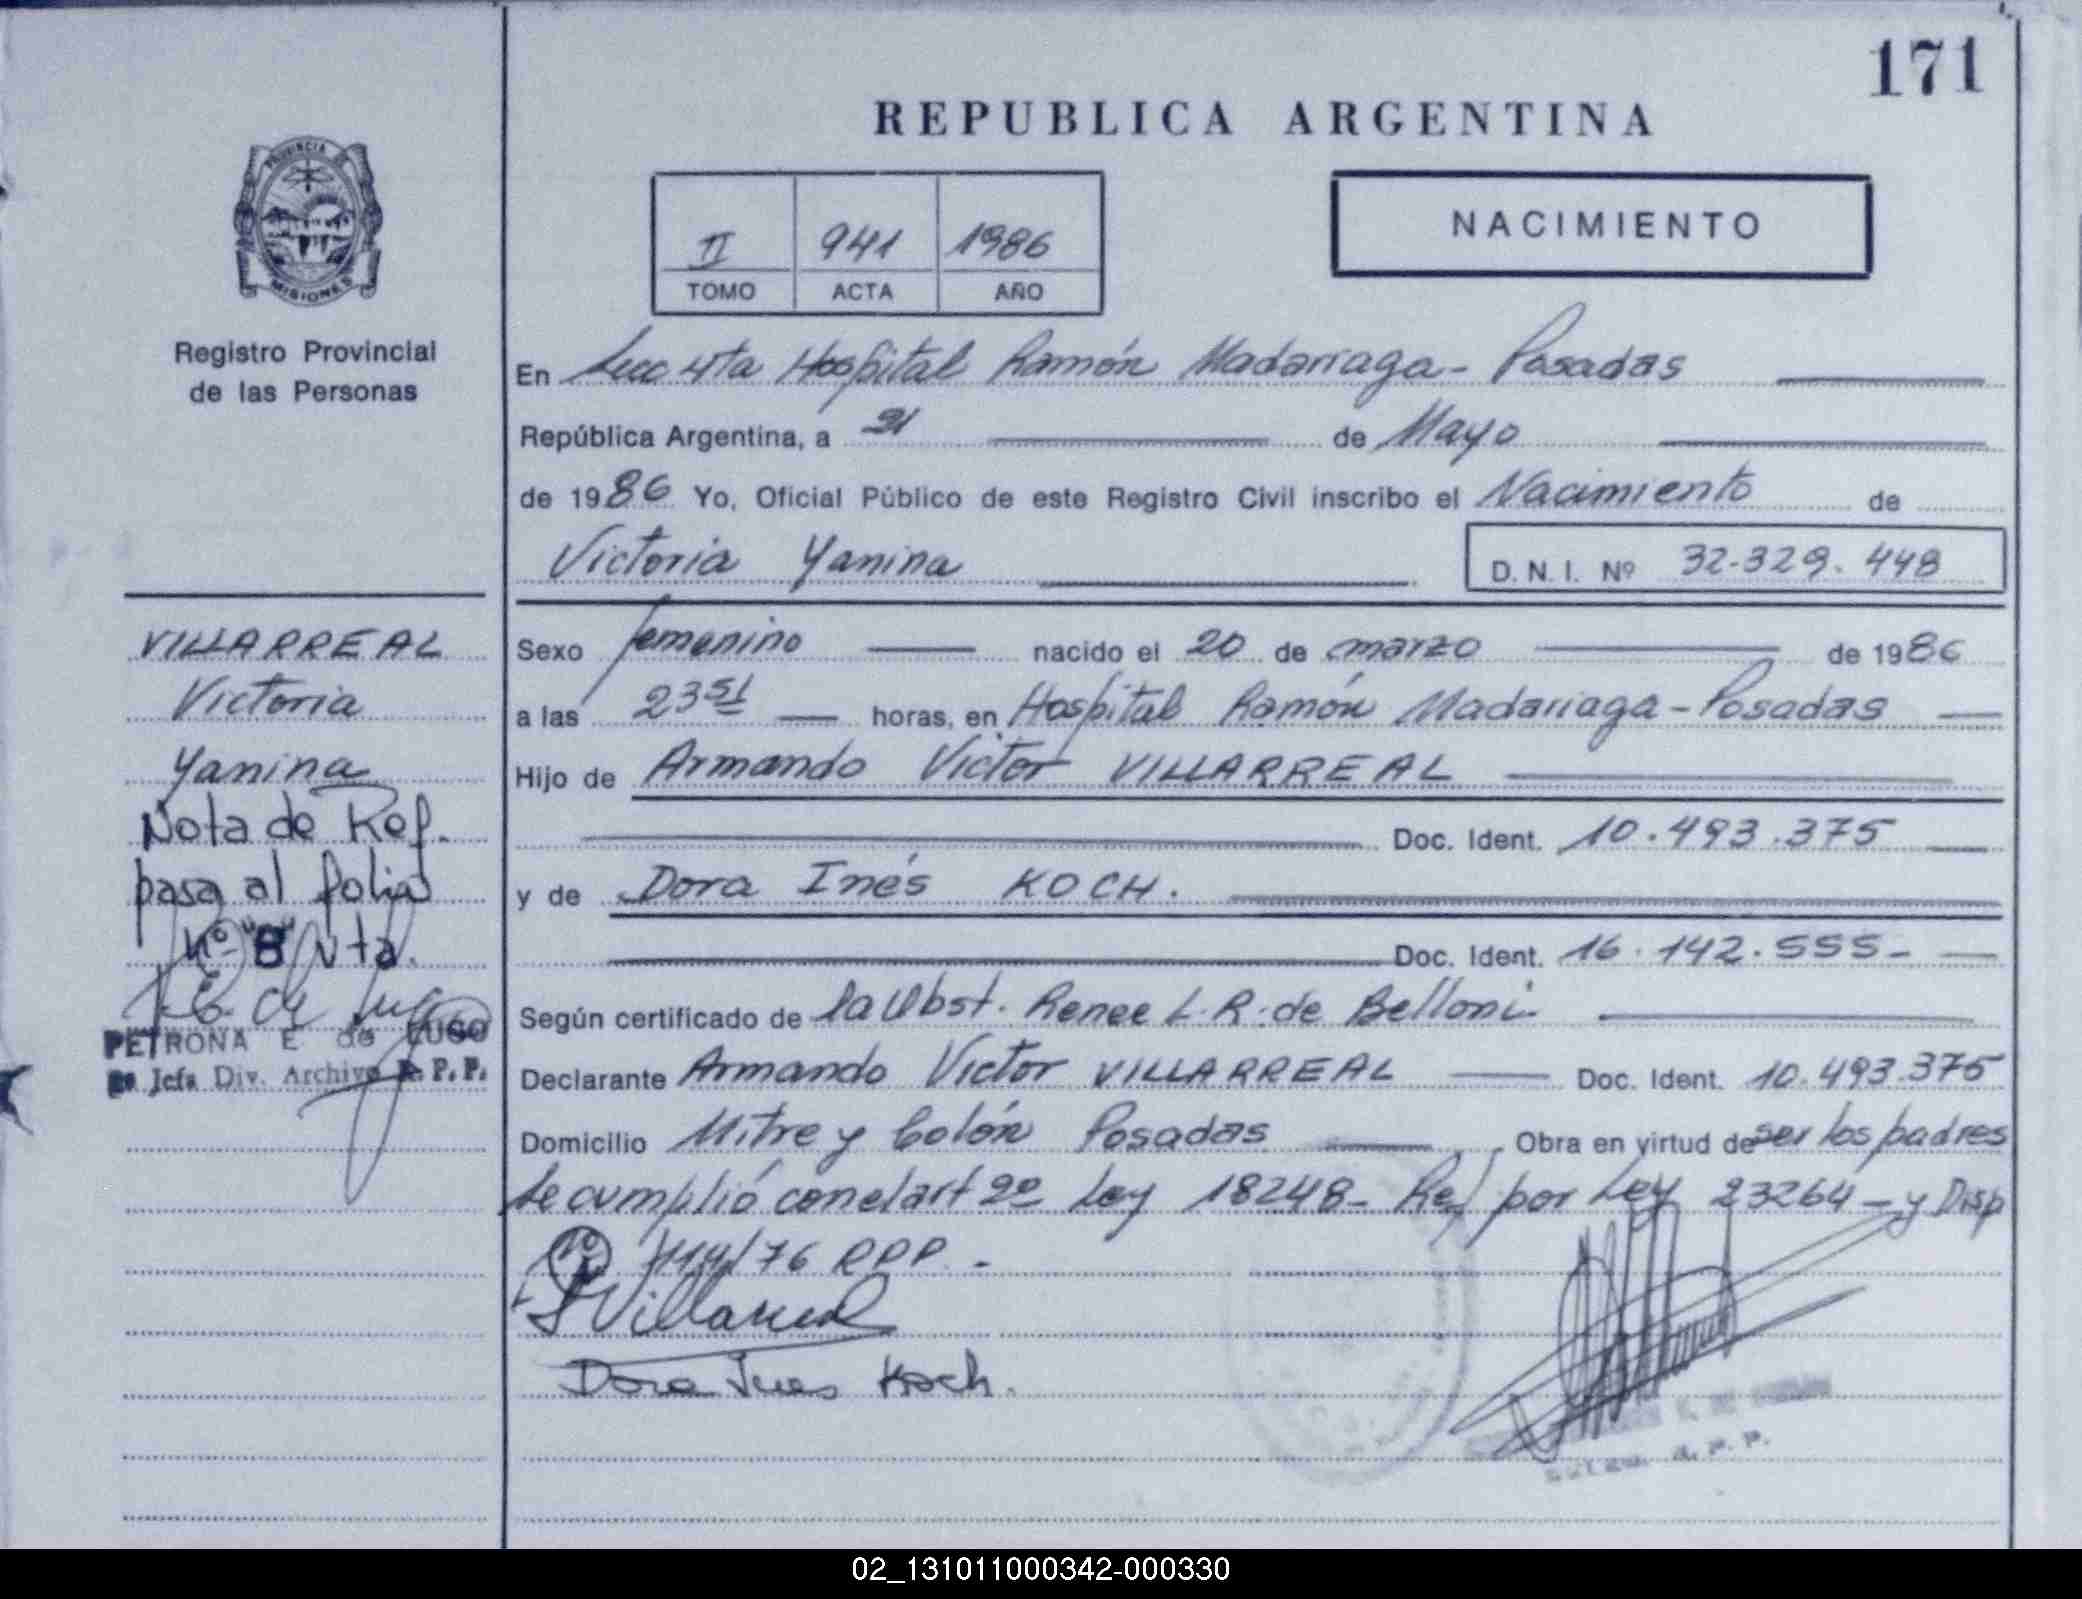 171
REPUBLICA ARGENTINA
PROVINCIA DE
MISIONES
Registro Provincial
de las Personas
II 941 1986
TOMO ACTA AÑO
NACIMIENTO
En Secc 4ta Hospital Ramón Madariaga - Posadas
República Argentina, a 21 de Mayo
de 1986 Yo, Oficial Público de este Registro Civil inscribo el Nacimiento de
Victoria Yanina
D. N. I. Nº 32.329.448
Sexo femenino nacido el 20 de marzo de 1986
a las 23 51 horas, en Hospital Ramón Madariaga - Posadas
Hijo de Armando Victor VILLARREAL
Doc. Ident. 10.493.375
y de Dora Inés KOCH.
Doc. Ident. 16.142.555-
Según certificado de la Obst. Renee L. R. de Belloni
Declarante Armando Victor VILLARREAL Doc. Ident. 10.493.375
Domicilio Mitre y Colón Posadas Obra en virtud de ser los padres
Se cumplió con el art 2º Ley 18248- Ref por Ley 23264 - y Disp
Nº /76 RPP. -
Villarreal
Dora Ines Koch.
R. P. P.
VILLARREAL
Victoria
Yanina
Nota de Ref.
pasa al folio
nº "8" vta.
PETRONA E de LUGO
Jefa Div. Archivo R. P. P.
02_131011000342-000330